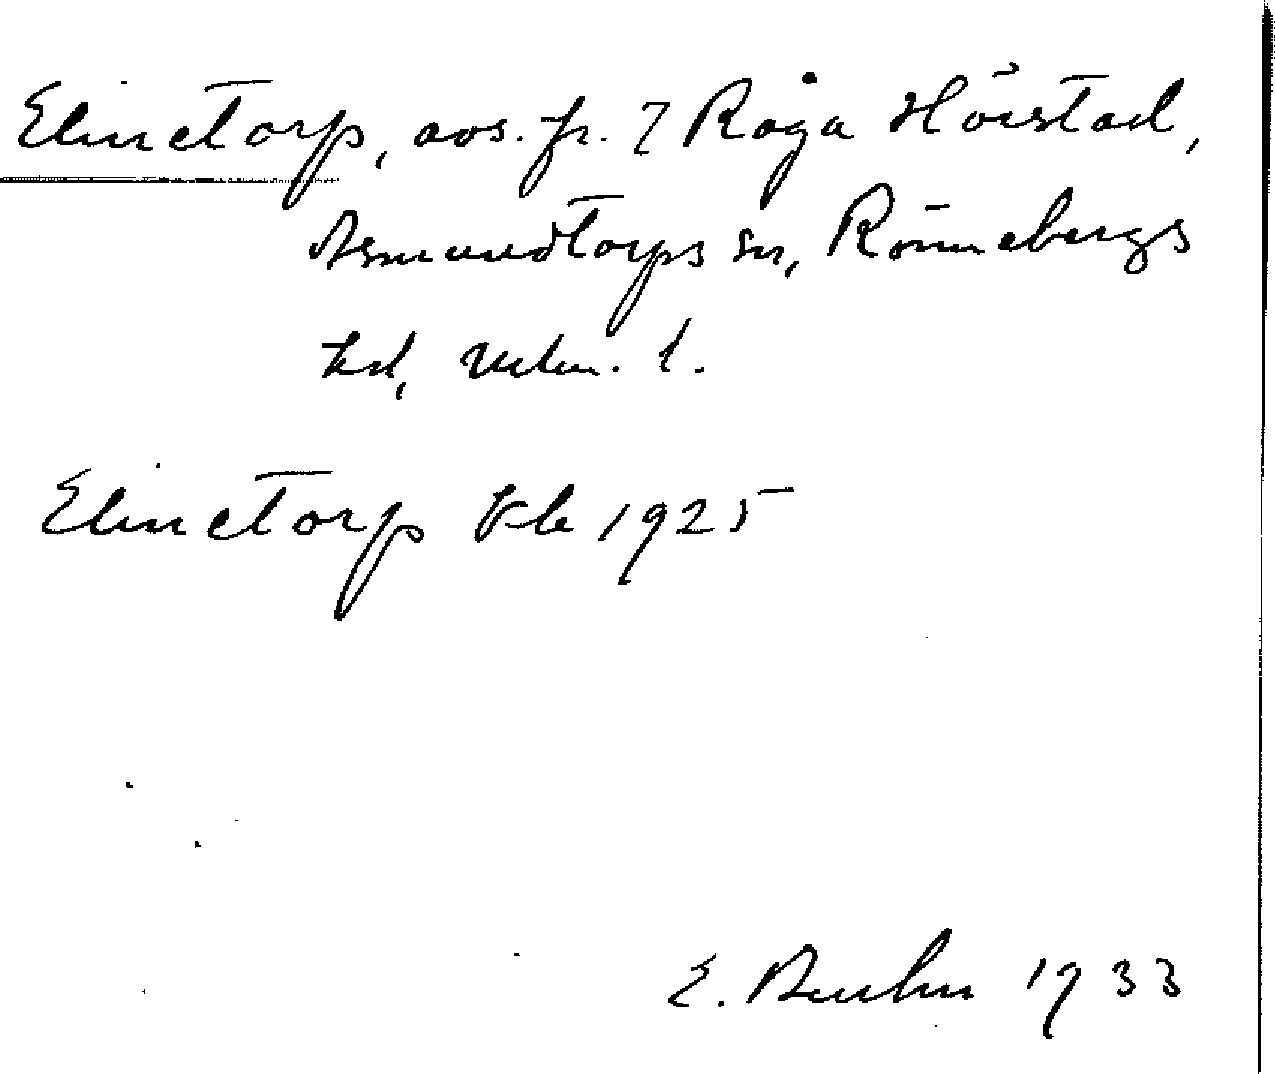 Elinetorp, avs. fr. 7 Råga Hörstad,
Asmundtorps sn, Rönnebergs
hd, Malm. l.
Elinetorp Jbk 1925
E. Bruhn 1933